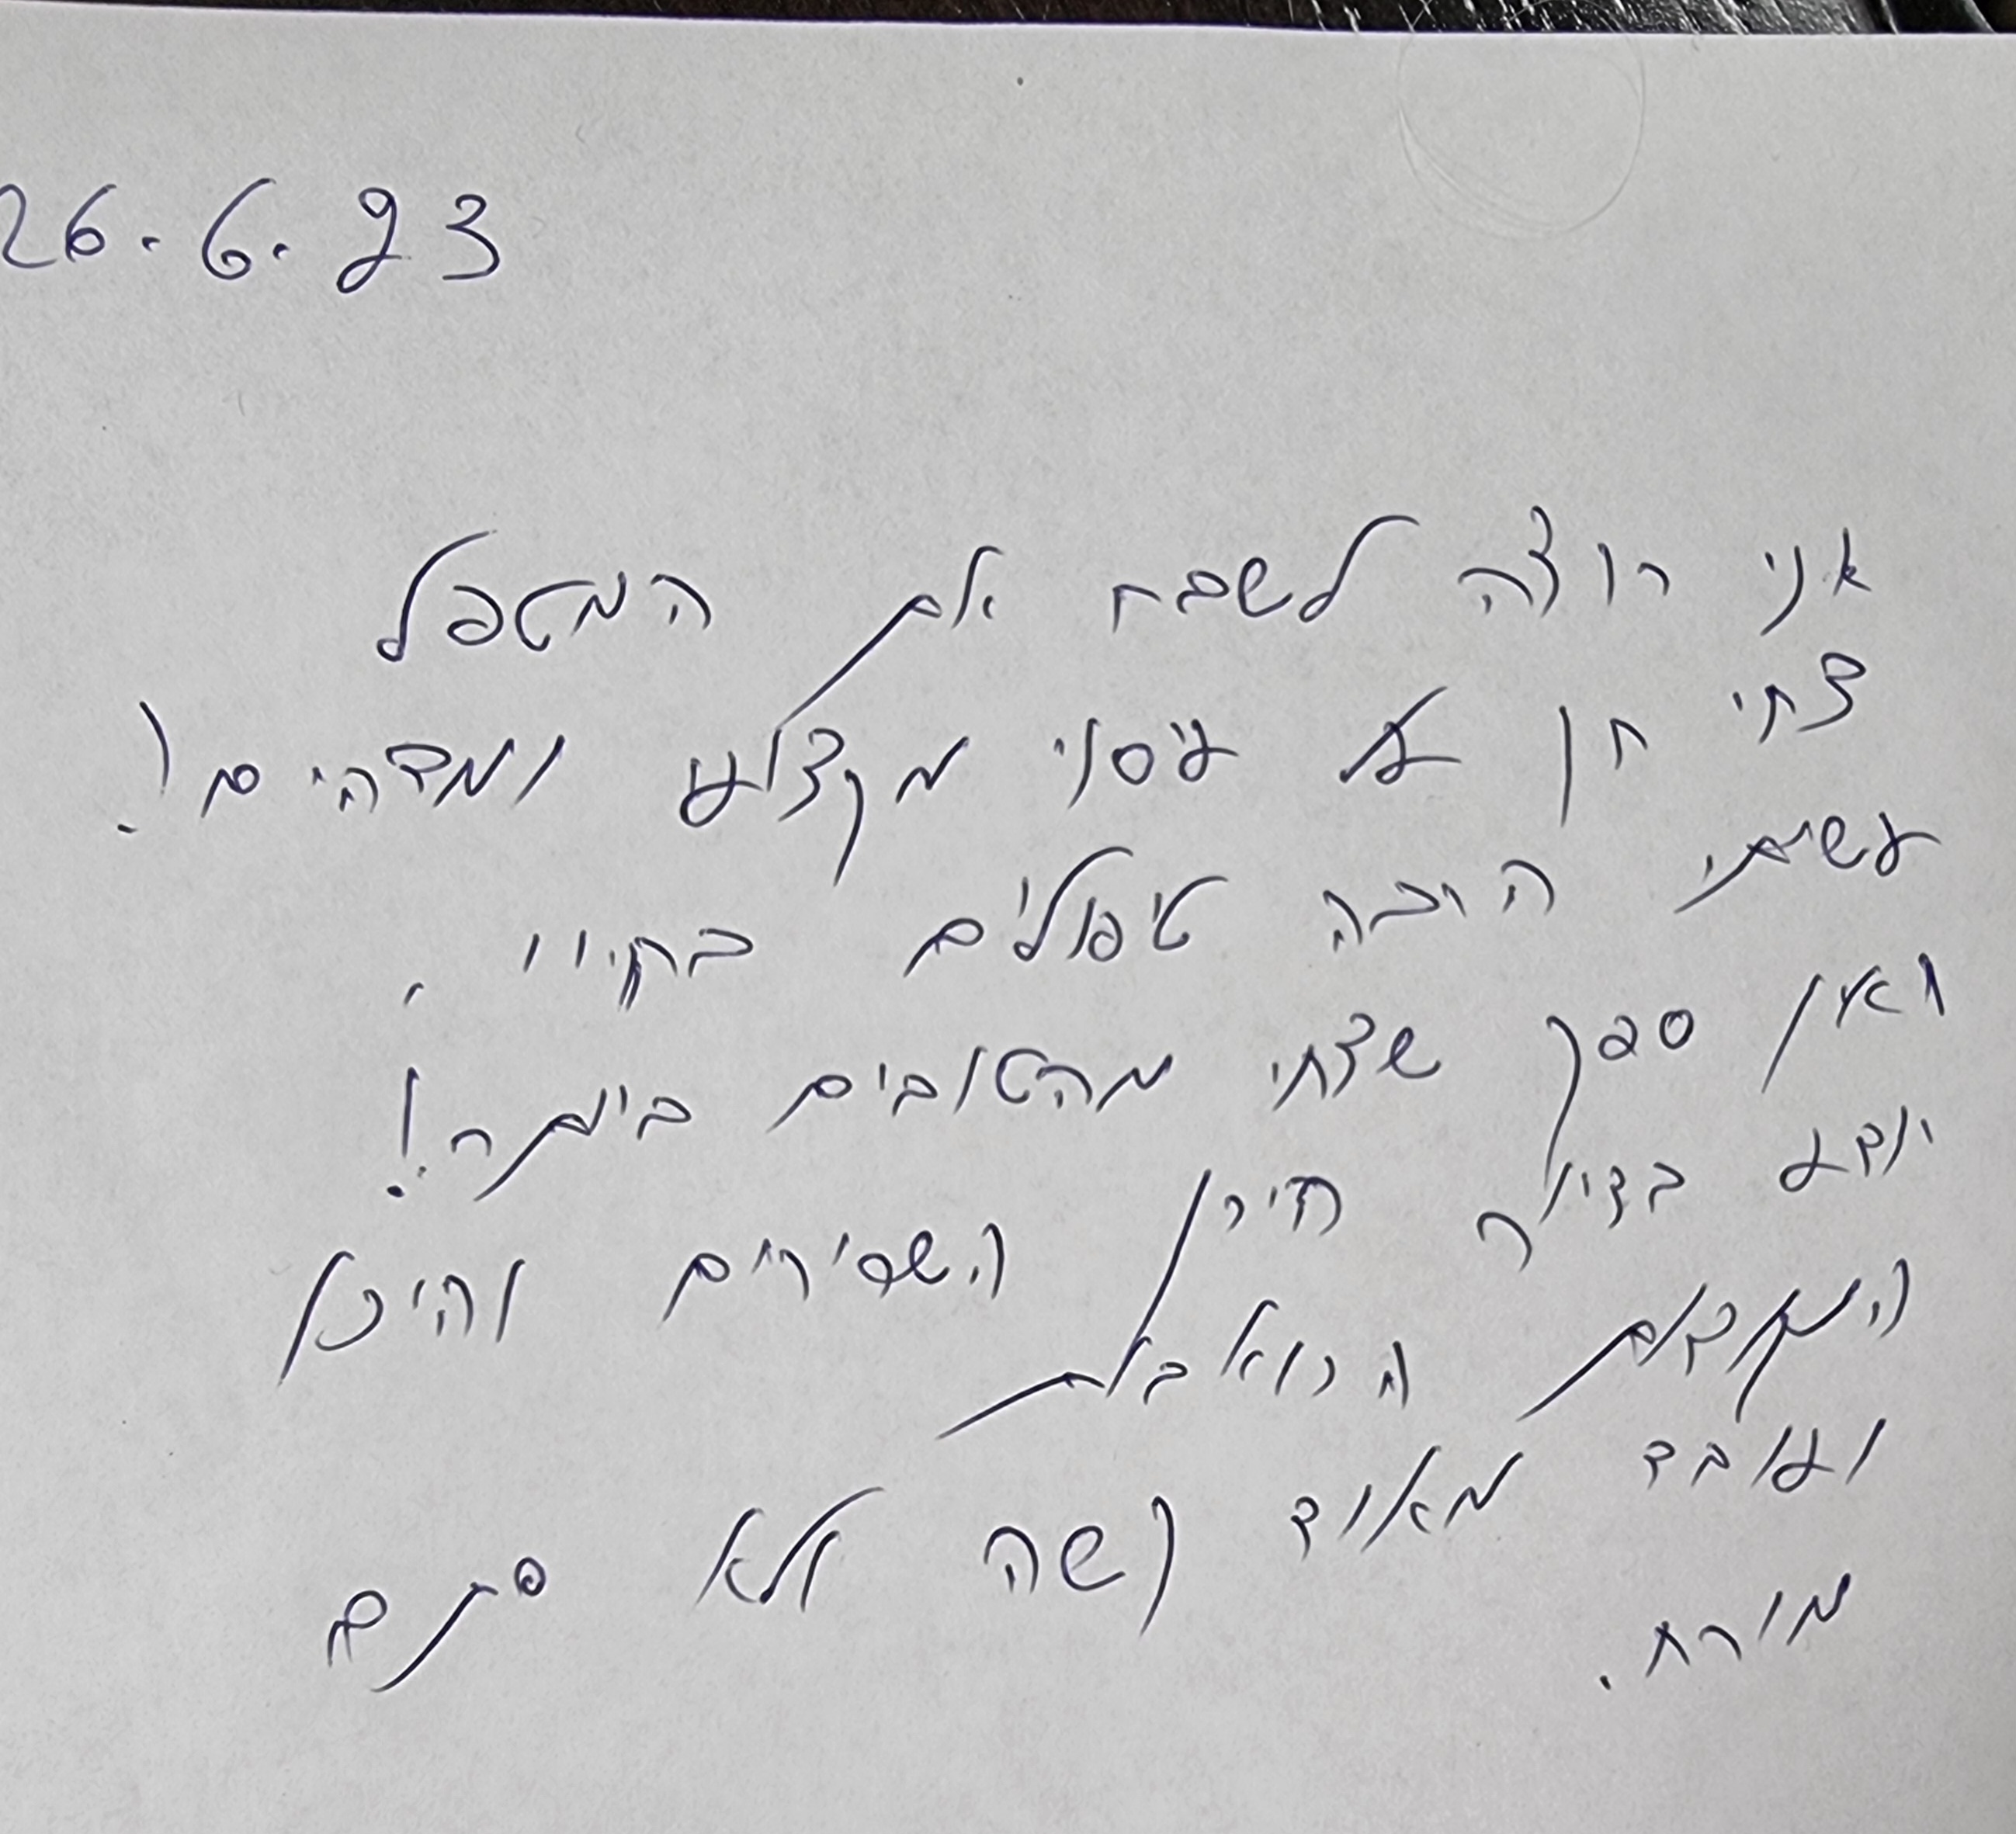 26.6.23
אני רוצה לשבח את המטפל
צחי חן על עיסוי מקצוע ומדהים!
עשיתי הרבה טיפולים בחיי.
ואין ספק שצחי מהטובים ביותר!
יודע בדיוק היכן השרירים והיכן
הנקודות הכואבות
ועובד מאוד קשה ולא סתם
מורח.